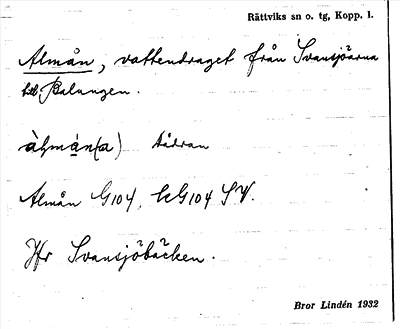 Rättviks sn o. tg, Kopp. l.
Almån, vattendraget från Svansjöarna
till Balungen.
àḷmán(a) bådran
Almån G104, kG104 SV.
Jfr Svansjöbäcken.
Bror Lindén 1932